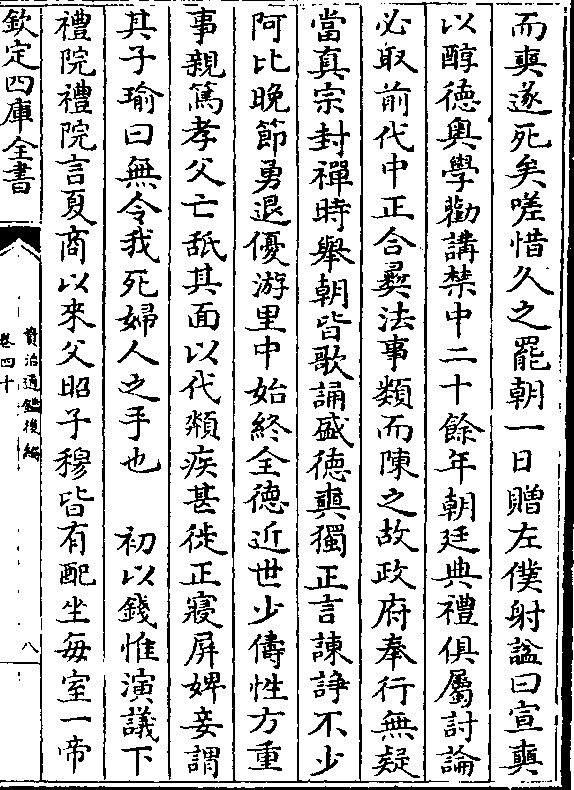 而奭遂死矣嗟惜久之罷朝一日贈左僕射諡曰宣奭
以醇徳奥學勸講禁中二十餘年朝廷典禮俱屬討論
必取前代中正合彛法事類而陳之故政府奉行無疑
當真宗封禪時舉朝皆歌誦盛徳奭獨正言諫諍不少
阿比晚節勇退優游里中始終全德近世少儔性方重
事親篤孝父亡舐其面以代頮疾甚徙正寢屏婢妾謂
其子瑜曰無令我死婦人之手也　初以錢惟演議下
禮院禮院言夏商以來父昭子穆皆有配坐每室一帝
欽定四庫全書
資治通鑑後編
卷四十
八